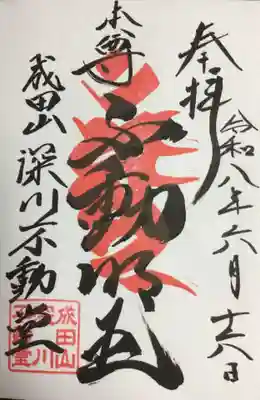 奉拝
令和八年六月十八日
本尊
不動明王
成田山
深川不動堂
成田山
深川
不動堂